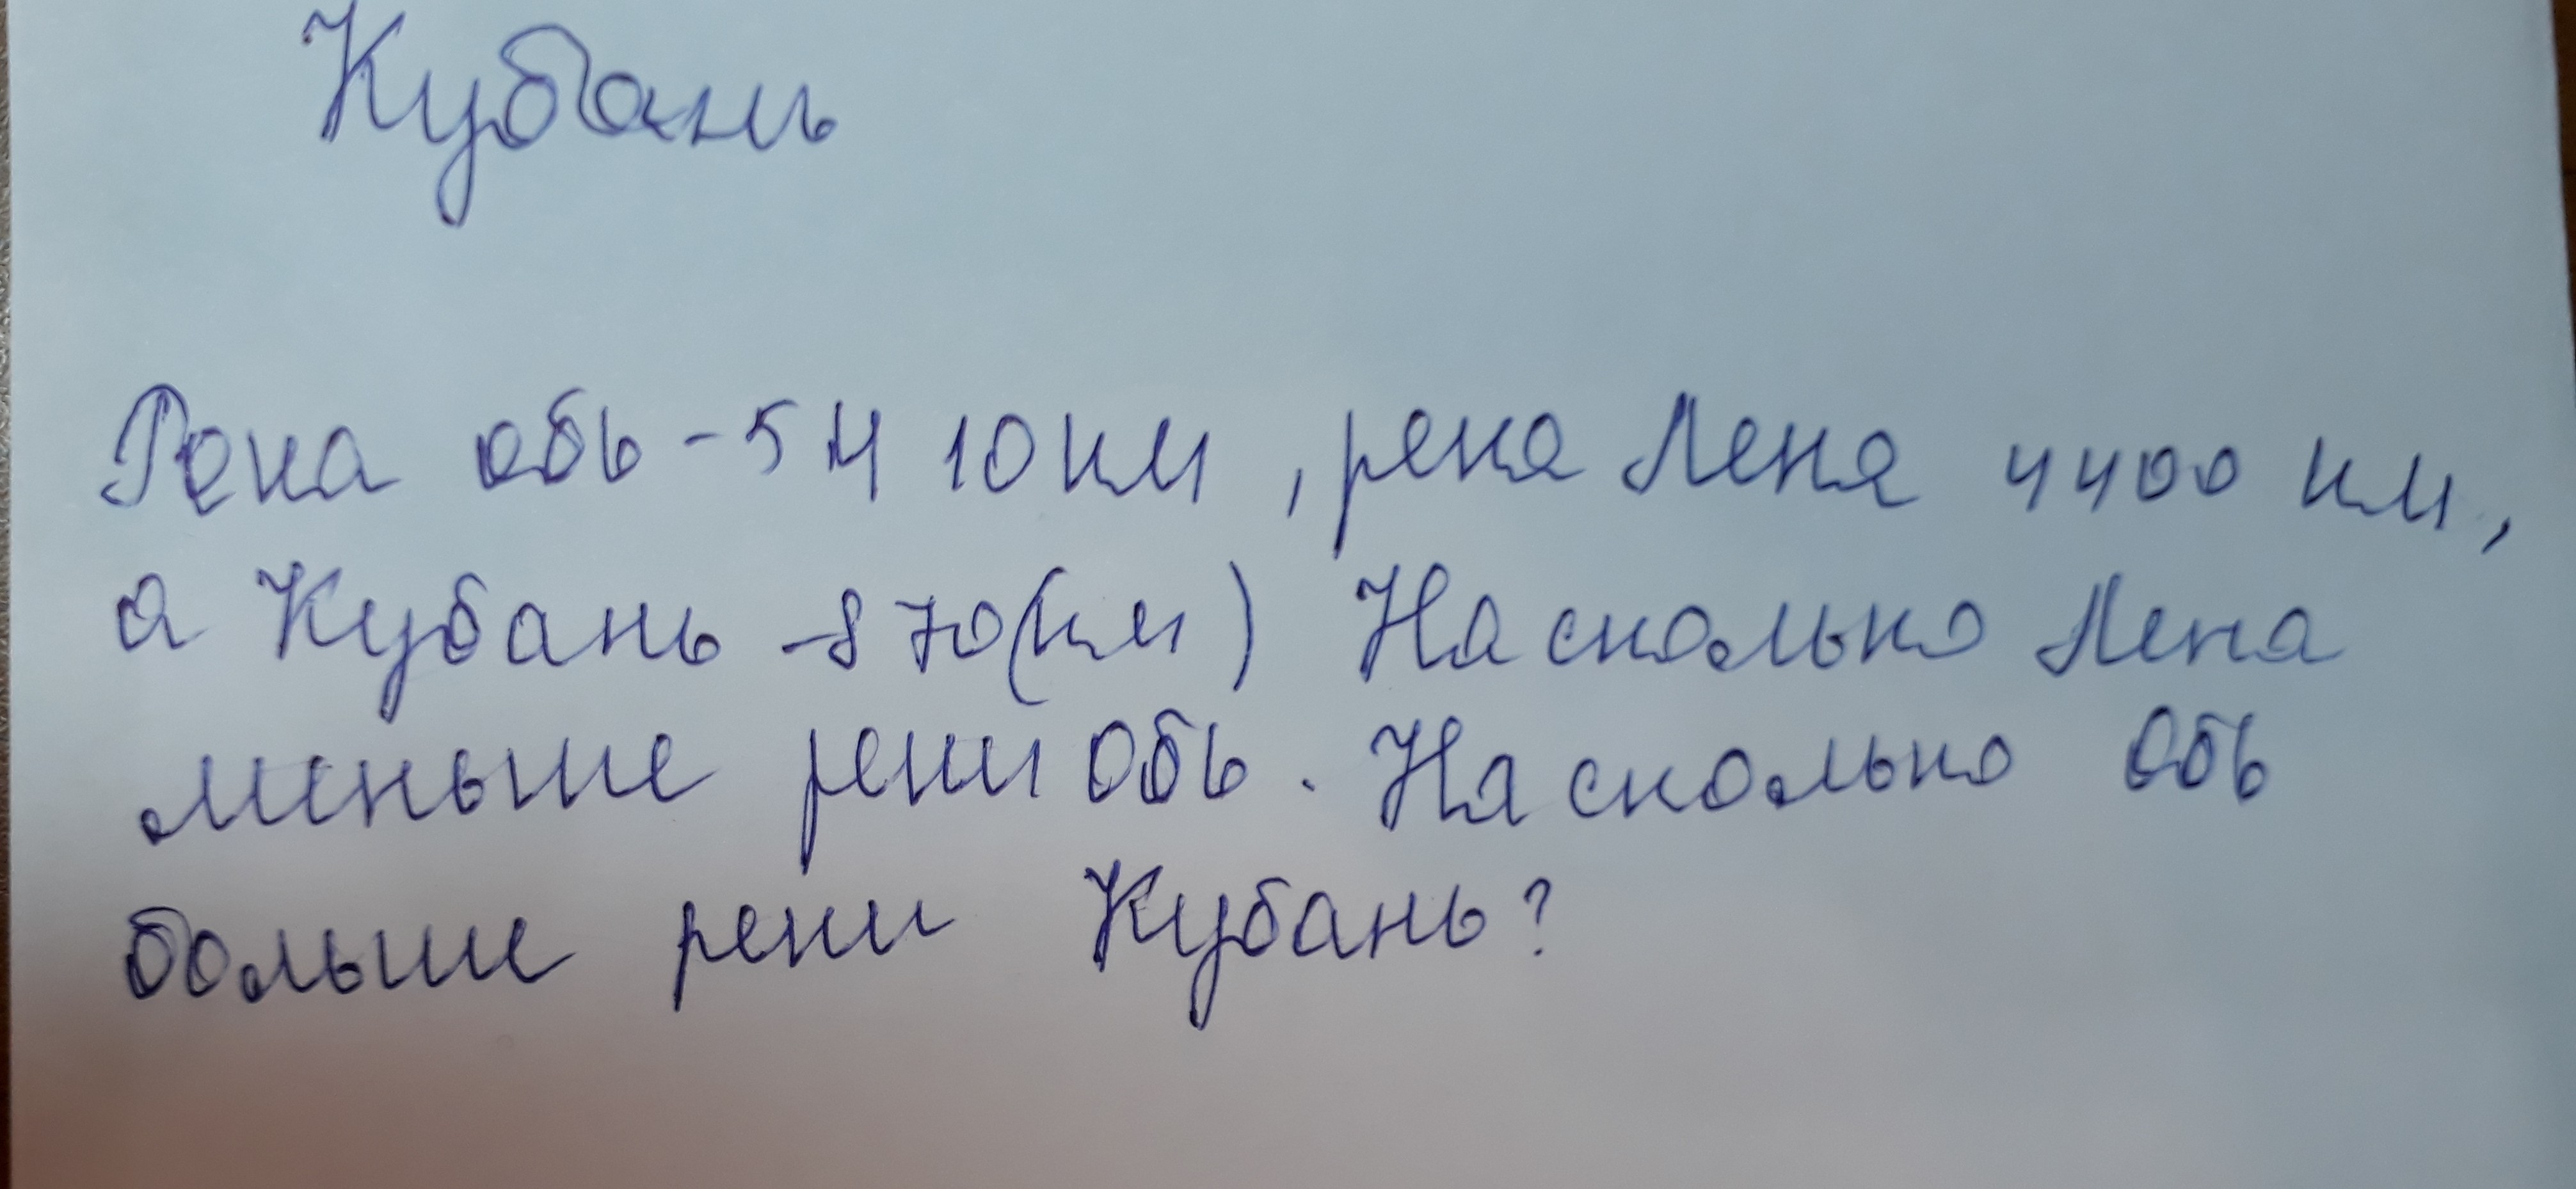 Кубань
Река обь - 5410 км, река Лена 4400 км,
а Кубань - 870 (км) На сколько Лена
меньше реки Обь. На сколько Обь
больше реки Кубань?